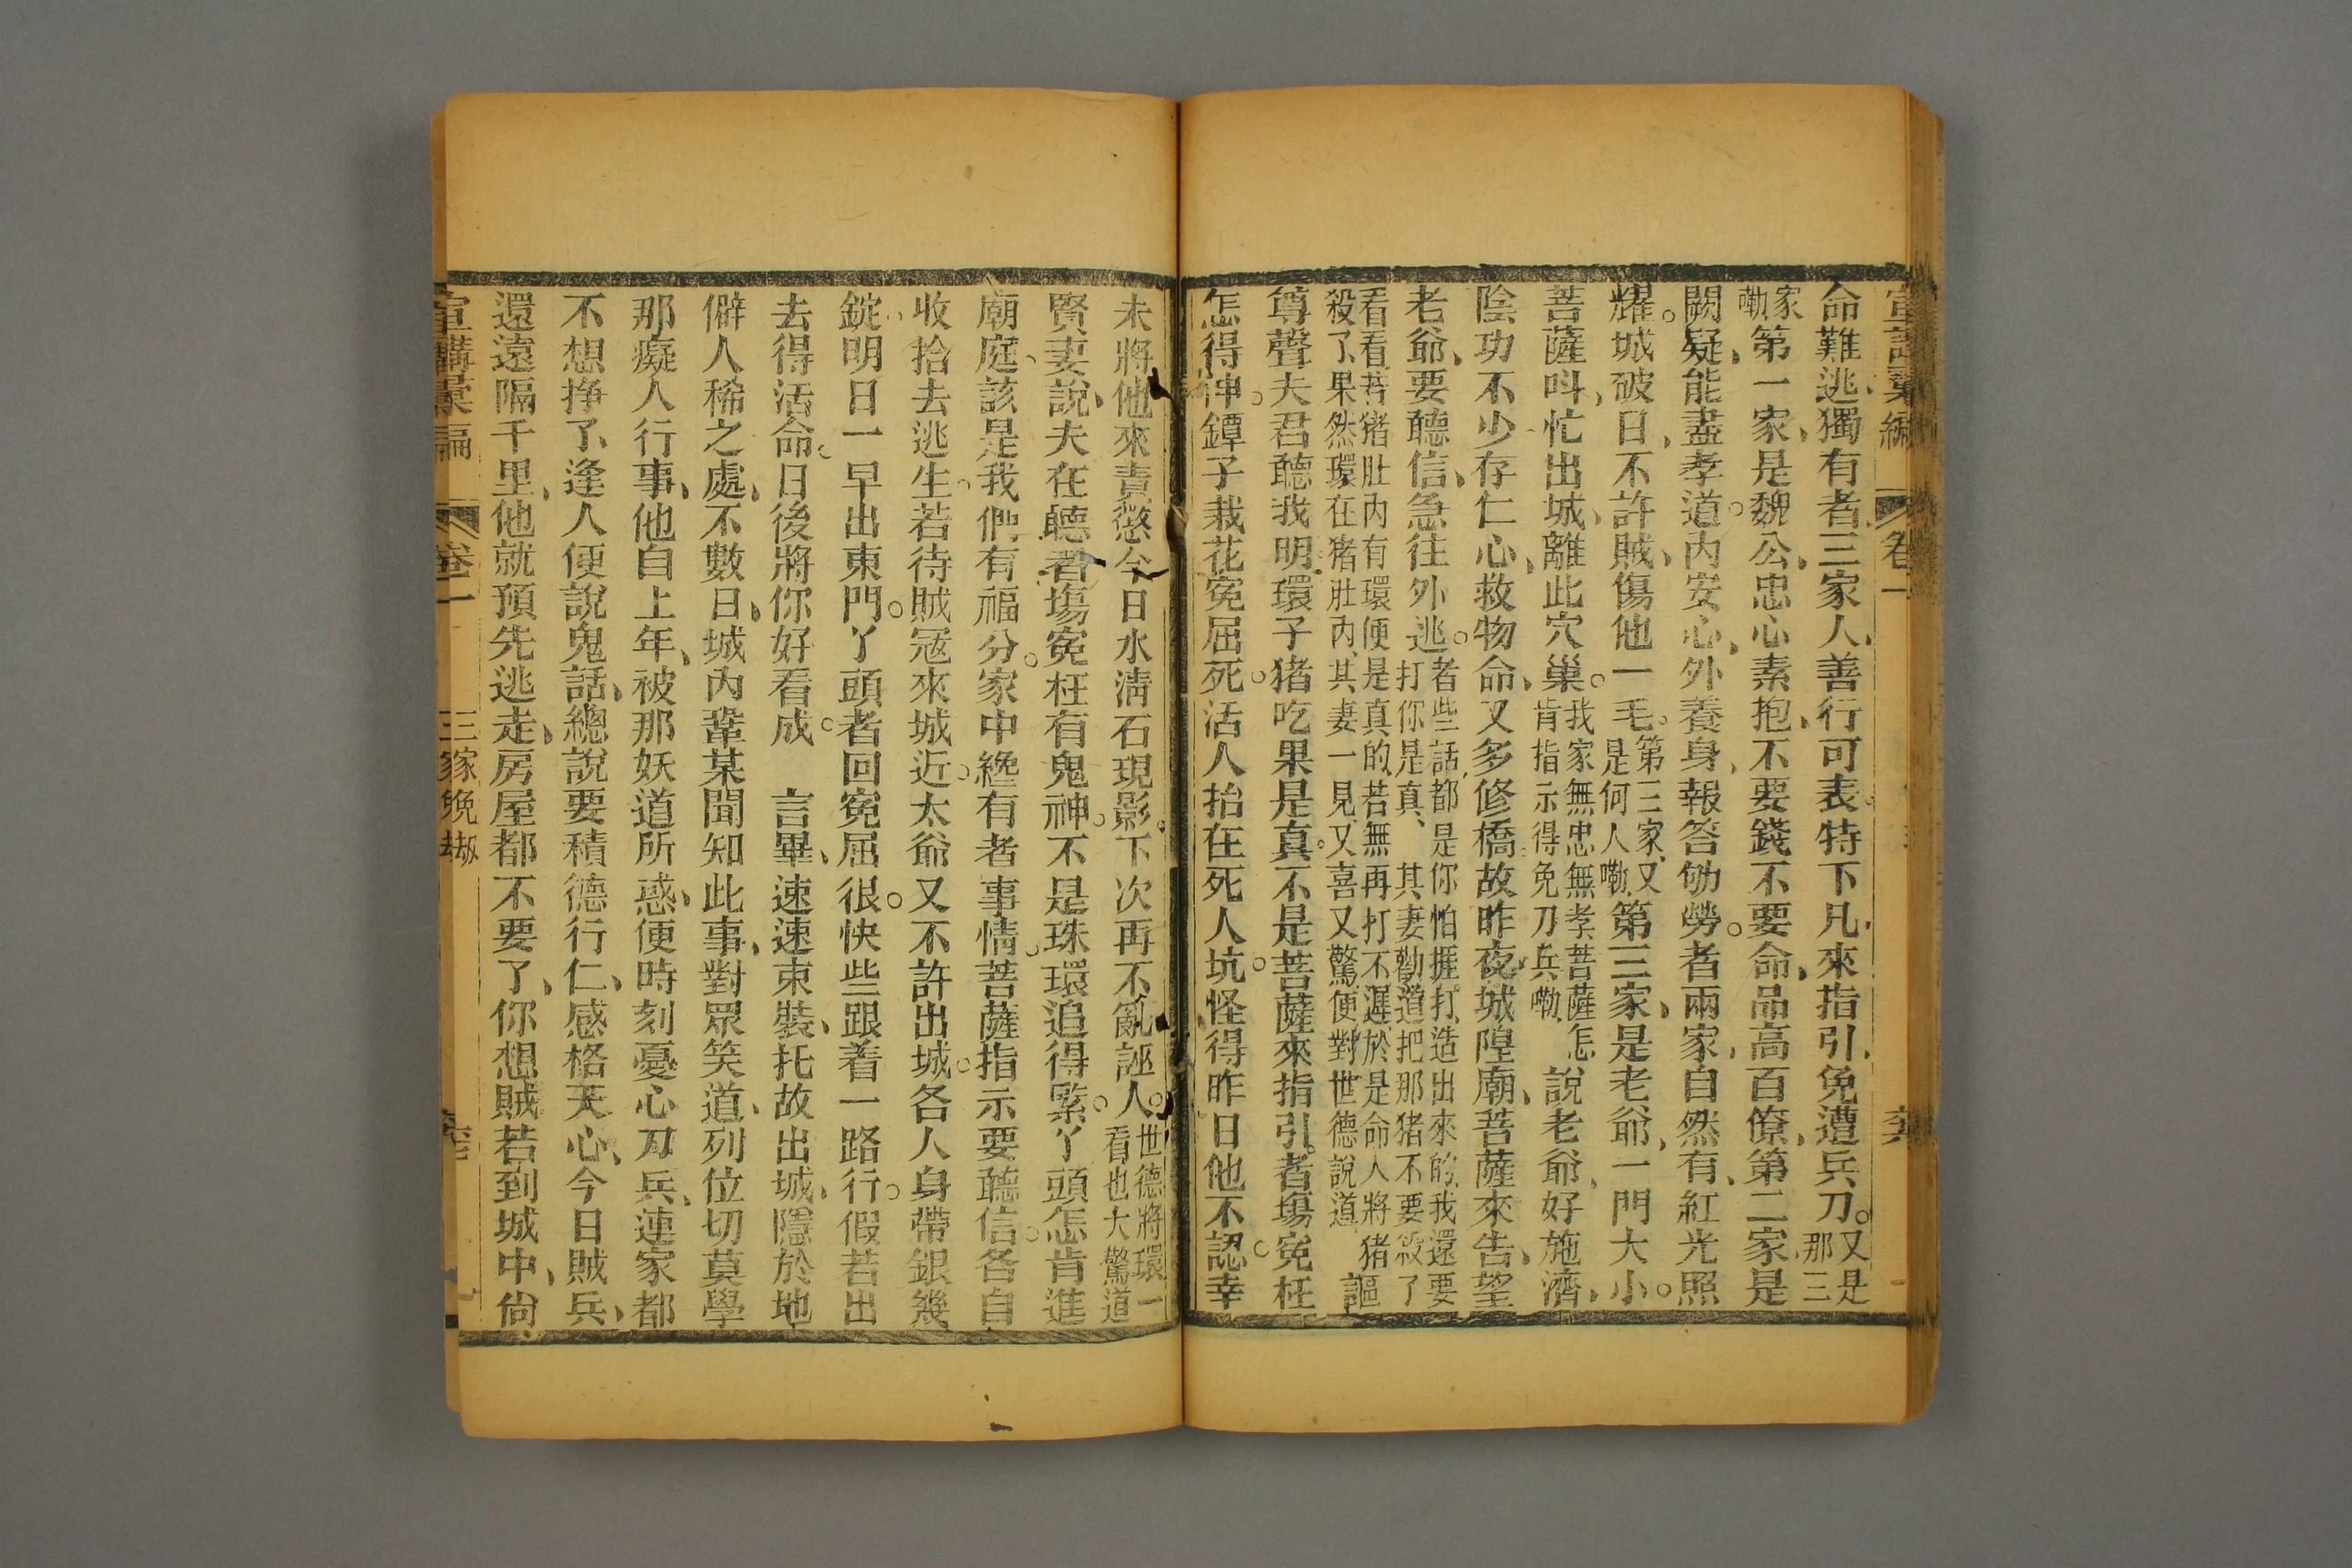 宣講彙編 卷一
命難逃獨有者三家人善行可表特下凡來指引免遭兵刀。又是那三
家嘞第一家是魏公忠心素抱不要錢不要命品高百僚第二家是
闕疑能盡孝道。內安心外養身報答劬勞。者兩家自然有紅光照
耀。城破日不許賊傷他一毛。第三家又是何人嘞第三家是老爺一門大小。
菩薩呌忙出城離此穴巢。我家無忠無孝菩薩怎肯指示得免刀兵嘞說老爺好施濟
陰功不少存仁心救物命又多修橋故昨夜城隍廟菩薩來告望
老爺要聽信急往外逃。者些話都是你怕捱打造出來的我還要打你是真其妻勸道把那猪不要殺了
看看若猪肚內有環便是真的若無再打不遲於是命人將猪殺了果然環在猪肚內其妻一見又喜又驚便對世德說道謳
尊聲夫君聽我明環子猪吃果是真。不是菩薩來指引。者塲寃枉
怎得伸。鐔子栽花寃屈死。活人抬在死人坑。怪得昨日他不認。幸
未將他來責懲今日水淸石現影。下次再不亂誣人。世德將環一看也大驚道
賢妻說夫在聽者塲寃枉有鬼神。不是珠環追得緊。丫頭怎肯進
廟庭該是我們有福分。家中纔有者事情。菩薩指示要聽信。各自
收拾去逃生。若待賊冦來城近。太爺又不許出城。各人身帶銀幾
錠明日一早出東門。丫頭者回寃屈很。快些跟着一路行。假若出
去得活命。日後將你好看成。言畢速速束裝托故出城隱於地
僻人稀之處不數日城內鞏某聞知此事對眾笑道列位切莫學
那癡人行事他自上年被那妖道所惑便時刻憂心刀兵連家都
不想掙了逢人便說鬼話總說要積德行仁感格天心今日賊兵
還遠隔千里他就預先逃走房屋都不要了你想賊若到城中尙
宣講彙編 卷一 三家免劫